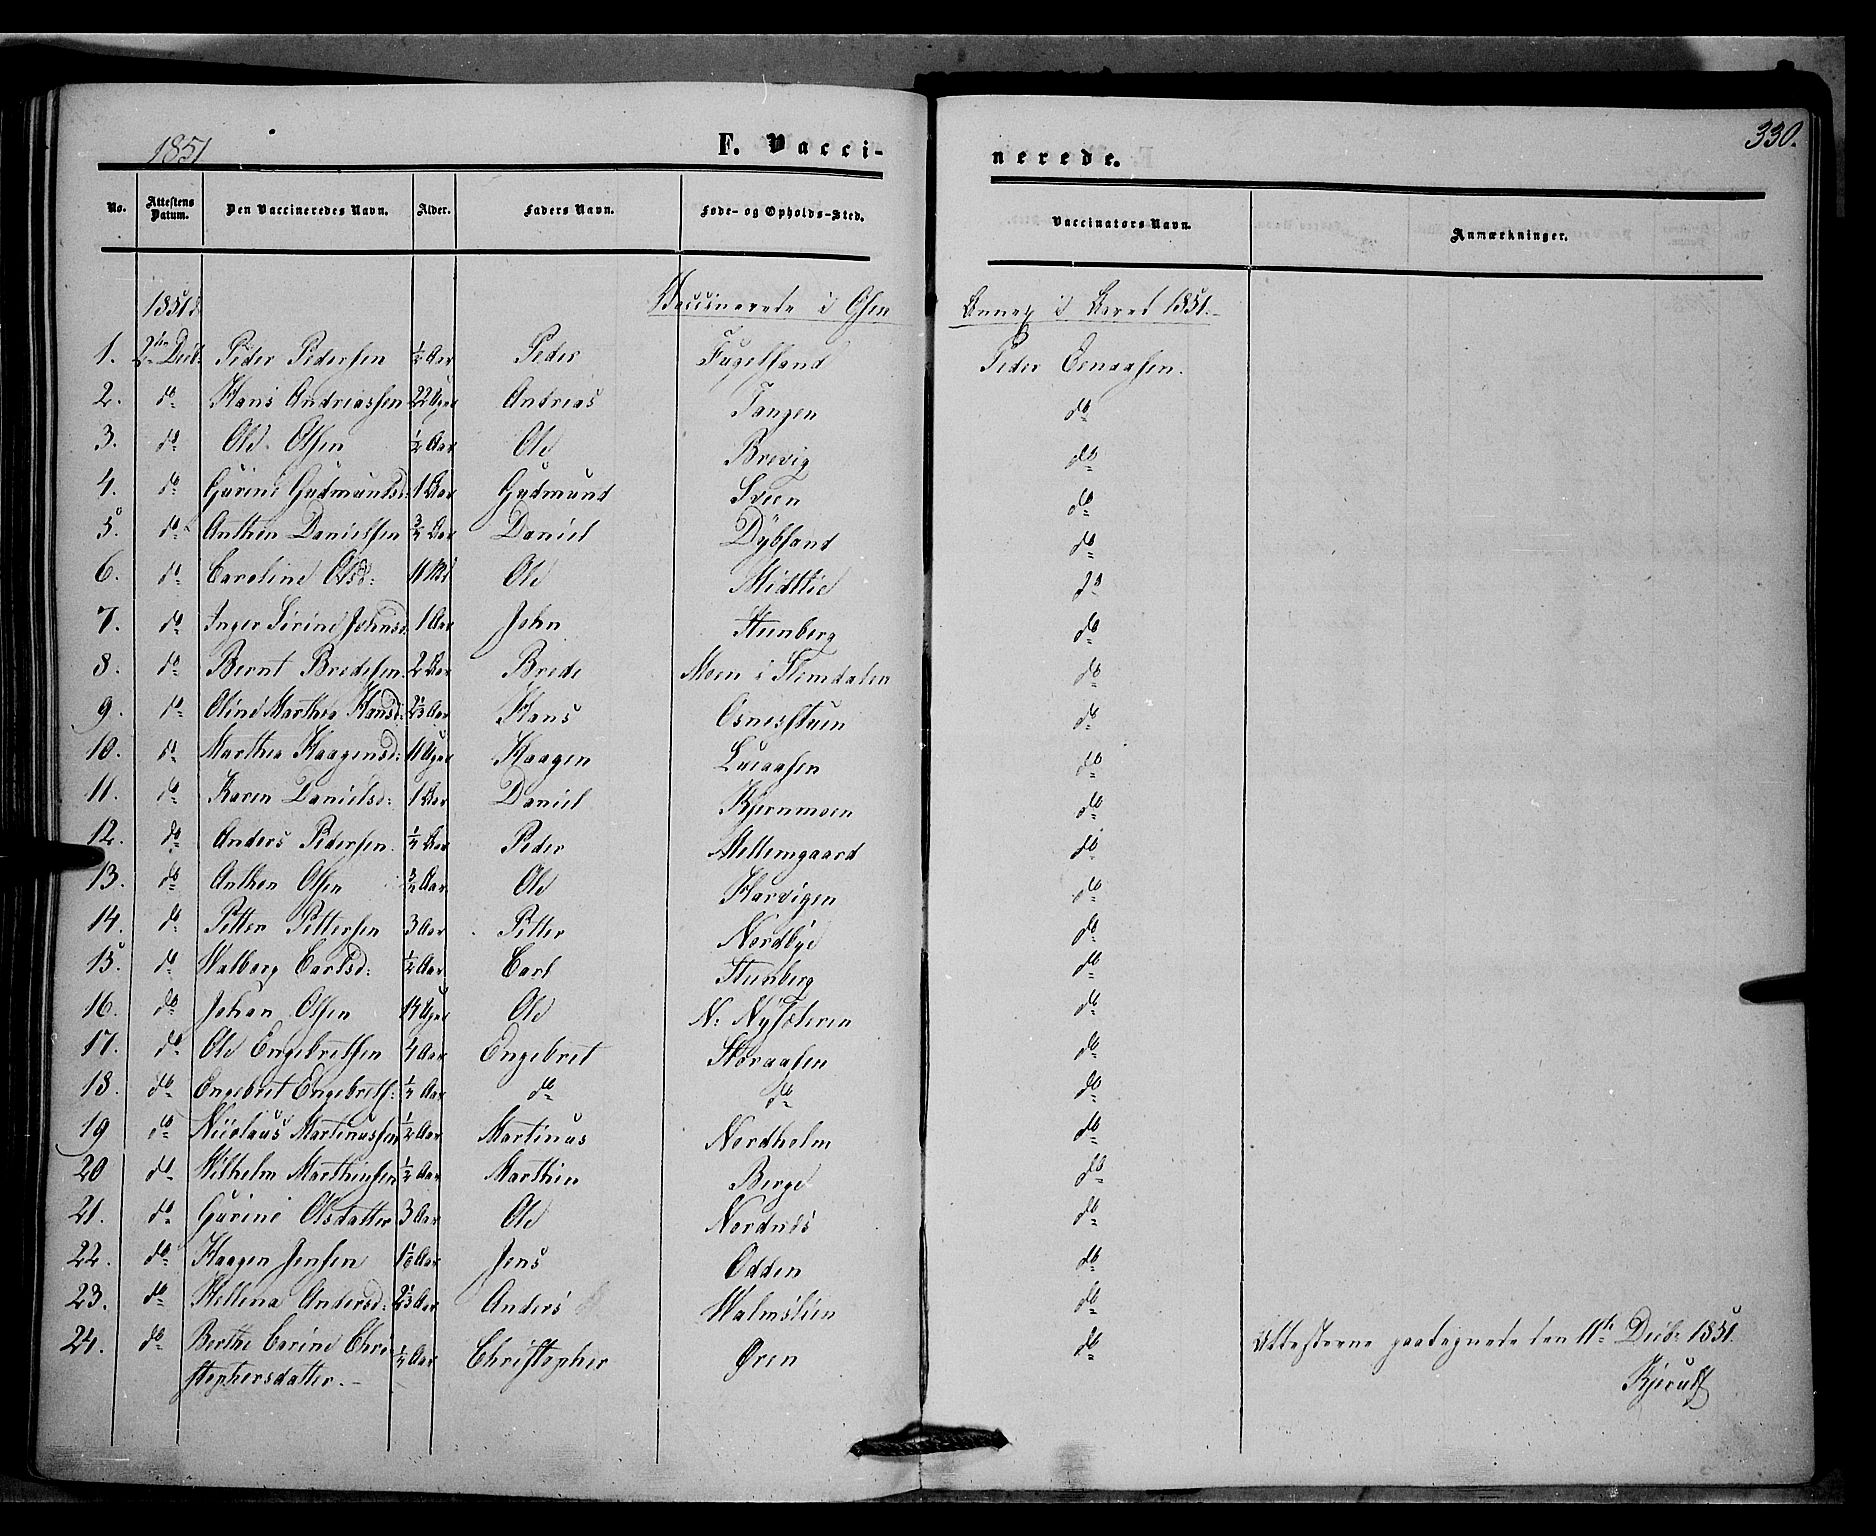 1851
F. Vacci-
nerede.
330.
No. Attestens Datum. Den Vaccineredes Navn. Alder. Faders Navn. Føde- og Opholds-Sted. Vaccinators Navn. Anmærkninger.
1851 Vaccinerede i Osen Annex i Aaret 1851.
1. 2den Decb. Peder Pedersen ½ Aar Peder Fugelsand Peder Evaasen.
2. do Hans Andreassen 22 Uger Andreas Tangen do
3. do Ole Olsen ½ Aar Ole Brevig do
4. do Gurine Gudmundsd: 1 Aar Gudmund Sveen do
5. do Anthon Danielsen Aar Daniel Dybsand do
6. do Caroline Olsd: 11 Ole Midtlie do
7. do Inger Sirine Johnsd. 1 Aar John Stenberg do
8. do Bernt Bredesen 2 Aar Brede Moen i Slemdalen do
9. do Oline Marthea Hansd: 2⅓ Aar Hans Osneskuen do
10. do Marthea Haagensd: 11 Uger Haagen Lueaasen do
11. do Karen Danielsd: 1 Aar Daniel Kjernmoen do
12. do Anders Pedersen. ½ Aar Peder Mellemgaard do
13. do Anthon Olsen Aar Ole Harvigen do
14. do Petter Pettersen 3 Aar Petter Nordbye do
15. do Walborg Carlsd: ½ Aar Carl Stenberg do
16. do Johan Olsen 14 Uger Ole N: Nysæteren do
17. do Ole Engebretsen 4 Aar Engebret Storaasen do
18. do Engebret Engebrets: ½ Aar do do do
19 do Nicolaus Martinussen ½ Aar Martinus Nordholm do
20 do Wilhelm Marthinsen ½ Aar Marthin Berge do
21. do Gurine Olsdatter 3 Aar Ole Nordnes do
22. do Haagen Jensen Aar Jens Odden do
23. do Hellena Andersd: 2⅓ Aar Anders Malmslien do
24. do Berthe Carine Chri- ½ Aar Christopher Øren do Attesterne paategnede den 11te Decb: 1851.
stophersdatter. Kjerulf